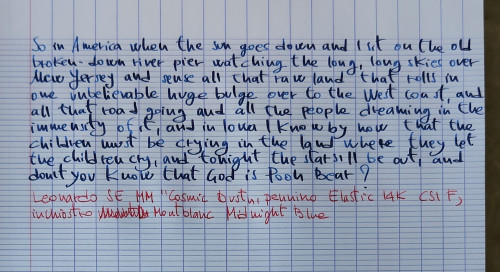 So in America when the sun goes down and I sit on the old
broken-down river pier watching the long, long skies over
New Jersey and sense all that raw land that rolls in
one unbelievable huge bulge over to the West Coast, and
all that road going and all the people dreaming in the
immensity of it, and in Iowa I know by now that the
children must be crying in the land where they let
the children cry, and tonight the stars'll be out, and
don't you know that God is Pooh Bear?
Leonardo SE MM "Cosmic Dust", pennino Elastic 14K CSI F,
inchiostro Montblanc Midnight Blue